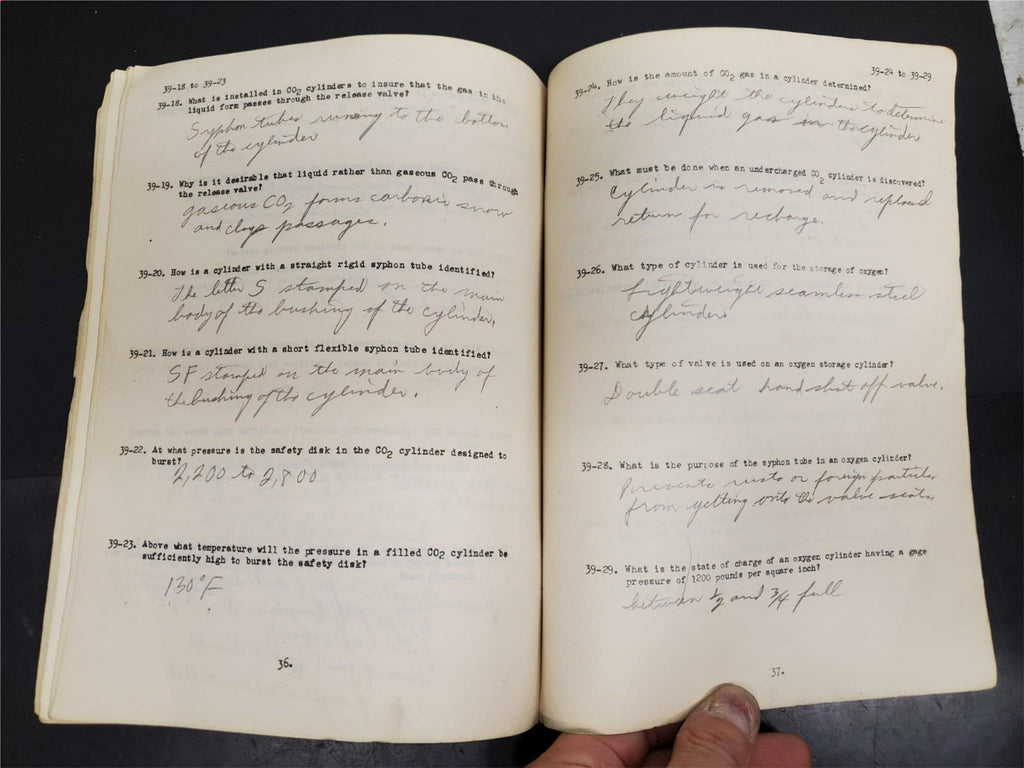 39-18 to 39-23
39-18. What is installed in CO2 cylinders to insure that the gas in the
liquid form passes through the release valve?
Syphon tubes running to the bottom
of the cylinder
39-19. Why is it desirable that liquid rather than gaseous CO2 pass through
the release valve?
gaseous CO2 forms carbonic snow
and clogs passages.
39-20. How is a cylinder with a straight rigid syphon tube identified?
The letter S stamped on the main
body of the bushing of the cylinder.
39-21. How is a cylinder with a short flexible syphon tube identified?
SF stamped on the main body of
the bushing of the cylinder.
39-22. At what pressure is the safety disk in the CO2 cylinder designed to
burst?
2,200 to 2,800
39-23. Above what temperature will the pressure in a filled CO2 cylinder be
sufficiently high to burst the safety disk?
130°F
36.
39-24 to 39-29
39-24. How is the amount of CO2 gas in a cylinder determined?
They weight the cylinders to determine
the liquid gas in the cylinder
39-25. What must be done when an undercharged CO2 cylinder is discovered?
Cylinder is removed and replaced
return for recharge.
39-26. What type of cylinder is used for the storage of oxygen?
Lightweight seamless steel
cylinder.
39-27. What type of valve is used on an oxygen storage cylinder?
Double seat hand shut off valve.
39-28. What is the purpose of the syphon tube in an oxygen cylinder?
Prevents rusts or foreign particles
from getting onto the valve seat.
39-29. What is the state of charge of an oxygen cylinder having a gage
pressure of 1200 pounds per square inch?
between 1/2 and 3/4 full
37.